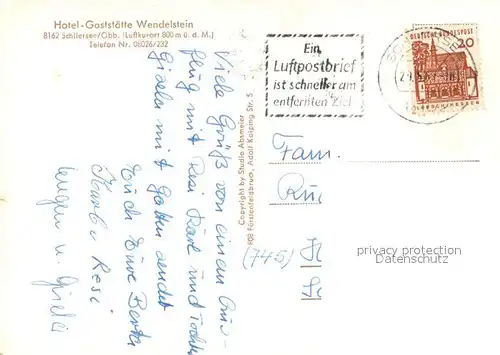 Hotel-Gaststätte Wendelstein
8162 Schliersee/Obb. (Luftkurort 800 m ü. d. M.)
Telefon Nr. 08026/232
Ein
Luftpostbrief
ist schneller am
entfernten Ziel
DEUTSCHE BUNDESPOST
20
Viele Grüße von einem Aus-
flug mit Resi Karl und Tochter
Gisela mit Gatten sendet
Euch Eure Berta
Resi
u. Gisela
Copyright by Studio Absmeier
808 Fürstenfeldbruck, Adolf Kolping Str. 5
Fam.
(745)
privacy protection
DATENSCHUTZ